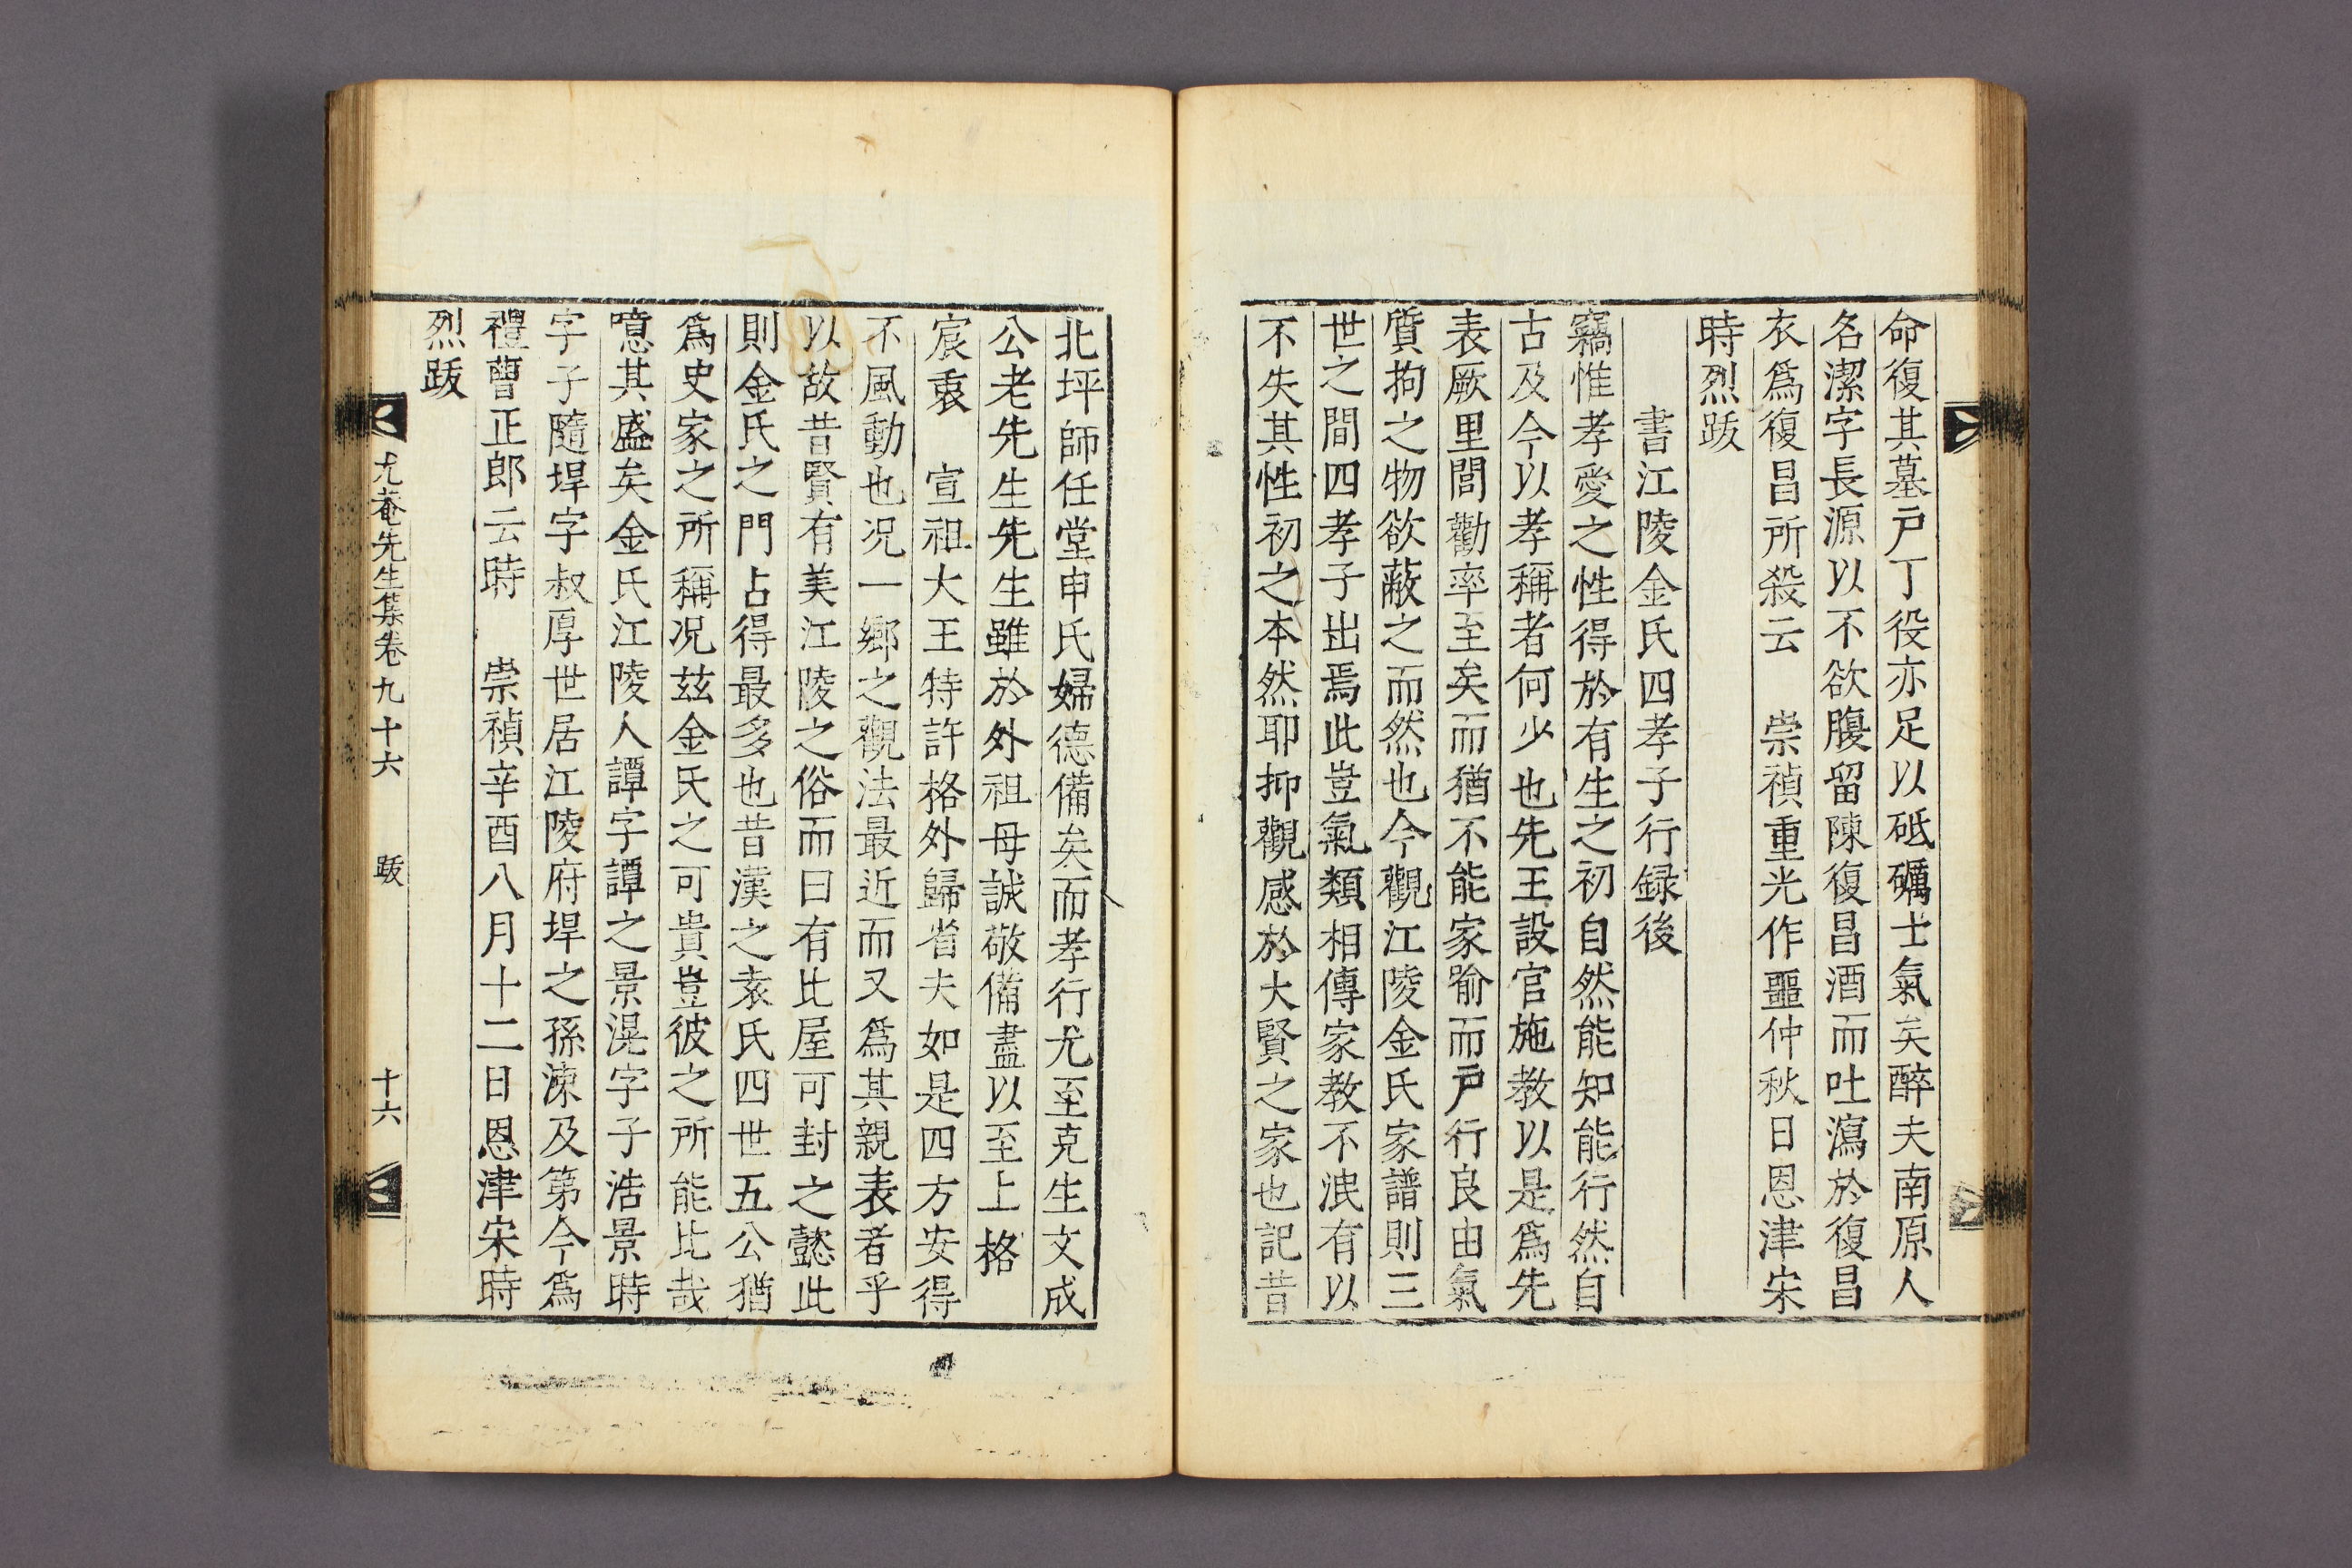 命復其墓戶丁役亦足以砥礪士氣矣醉夫南原人
名潔字長源以不欲腹留陳復昌酒而吐瀉於復昌
衣爲復昌所殺云　崇禎重光作噩仲秋日恩津宋
時烈跋
書江陵金氏四孝子行録後
竊惟孝愛之性得於有生之初自然能知能行然自
古及今以孝稱者何少也先王設官施教以是爲先
表厥里閭勸率至矣而猶不能家喻而戶行良由氣
質拘之物欲蔽之而然也今觀江陵金氏家譜則三
世之間四孝子出焉此豈氣類相傳家教不泯有以
不失其性初之本然耶抑觀感於大賢之家也記昔
北坪師任堂申氏婦德備矣而孝行尤至克生文成
公老先生先生雖於外祖母誠敬備盡以至上格
宸衷　宣祖大王特許格外歸省夫如是四方安得
不風動也况一鄉之觀法最近而又爲其親表者乎
以故昔賢有美江陵之俗而曰有比屋可封之懿此
則金氏之門占得最多也昔漢之袁氏四世五公猶
爲史家之所稱况玆金氏之可貴豈彼之所能比哉
噫其盛矣金氏江陵人譚字譚之景滉字子浩景時
字子隨垾字叔厚世居江陵府垾之孫涑及第今爲
禮曹正郎云時　崇禎辛酉八月十二日恩津宋時
烈跋
尤菴先生集卷九十六　跋　十六